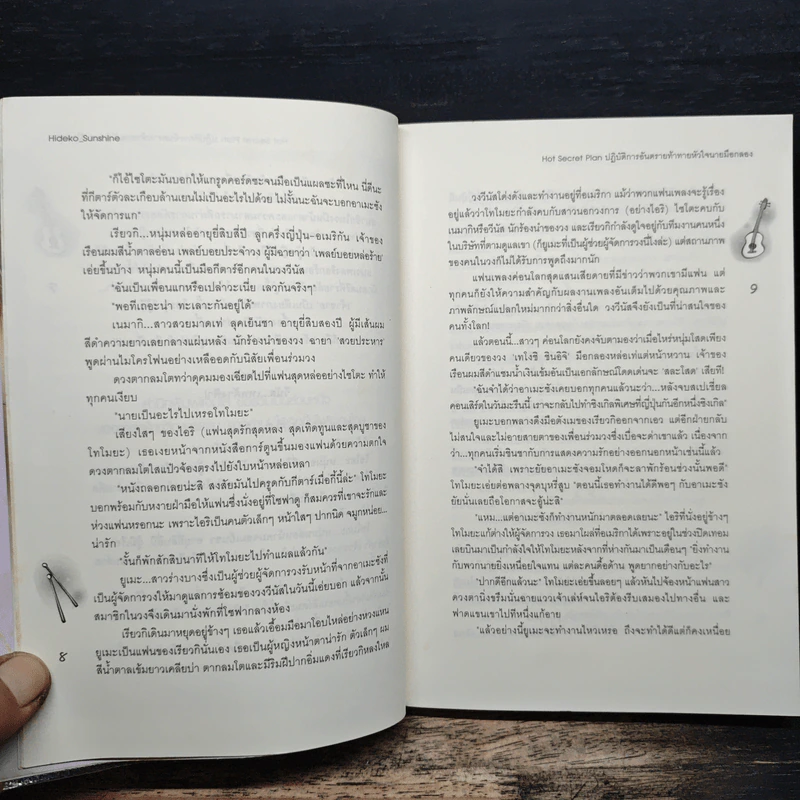 Hideko_Sunshine
"ก็โอ้ไซโตะมันบอกให้แกรูดคอร์ดซะจนมือเป็นแผลซะที่ไหน นี่ดีนะ
ที่กีตาร์ตัวละเกือบล้านเยนไม่เป็นอะไรไปด้วย ไม่งั้นนะฉันจะบอกอาเมะซัง
ให้จัดการแก"
เรียวกิ...หนุ่มหล่ออายุยี่สิบสี่ปี ลูกครึ่งญี่ปุ่น-อเมริกัน เจ้าของ
เรือนผมสีน้ำตาลอ่อน เพลย์บอยประจำวง ผู้มีฉายาว่า 'เพลย์บอยหล่อร้าย'
เอ่ยขึ้นบ้าง หนุ่มคนนี้เป็นมือกีตาร์อีกคนในวงวีนัส
"ฉันเป็นเพื่อนแกหรือเปล่าวะเนี่ย เลวกันจริงๆ"
"พอทีเถอะน่า ทะเลาะกันอยู่ได้"
เนมากิ...สาวสวยมาดเท่ ลุคเย็นชา อายุยี่สิบสองปี ผู้มีเส้นผม
สีดำความยาวเลยกลางแผ่นหลัง นักร้องนำของวง ฉายา 'สวยประหาร'
พูดผ่านไมโครโฟนอย่างเหลืออดกับนิสัยเพื่อนร่วมวง
ดวงตากลมโตทว่าดุคมมองเฉียดไปที่แฟนสุดหล่ออย่างไซโตะ ทำให้
ทุกคนเงียบ
"นายเป็นอะไรไปเหรอโทโมยะ"
เสียงใสๆ ของไอริ (แฟนสุดรักสุดหลง สุดเทิดทูนและสุดบูชาของ
โทโมยะ) เธอเงยหน้าจากหนังสือการ์ตูนขึ้นมองแฟนด้วยความตกใจ
ดวงตากลมโตใสแป๋วจ้องตรงไปยังใบหน้าหล่อเหลา
"หนังถลอกเลยน่ะสิ สงสัยมันไปครูดกับกีตาร์เมื่อกี้นี้ล่ะ" โทโมยะ
บอกพร้อมกับหงายฝ่ามือให้แฟนซึ่งนั่งอยู่ที่โซฟาดู ก็สมควรที่เขาจะรักและ
ห่วงแฟนหรอกนะ เพราะไอริเป็นคนตัวเล็กๆ หน้าใสๆ ปากนิด จมูกหน่อย...
น่ารัก
"งั้นก็พักสักสิบนาทีให้โทโมยะไปทำแผลแล้วกัน"
ยูเมะ...สาวร่างบางซึ่งเป็นผู้ช่วยผู้จัดการวงรับหน้าที่จากอาเมะซังที่
เป็นผู้จัดการวงให้มาดูแลการซ้อมของวงวีนัสในวันนี้เอ่ยบอก แล้วจากนั้น
สมาชิกในวงจึงเดินมานั่งพักที่โซฟากลางห้อง
เรียวกิเดินมาหยุดอยู่ข้างๆ เธอแล้วเอื้อมมือมาโอบไหล่อย่างหวงแหน
ยูเมะเป็นแฟนของเรียวกินั่นเอง เธอเป็นผู้หญิงหน้าตาน่ารัก ตัวเล็กๆ ผม
สีน้ำตาลเข้มยาวเคลียบ่า ตากลมโตและมีริมฝีปากอิ่มแดงที่เรียวกิหลงใหล
8
Hot Secret Plan ปฏิบัติการอันตรายท้าทายหัวใจนายมือกลอง
วงวีนัสโด่งดังและทำงานอยู่ที่อเมริกา แม้ว่าพวกแฟนเพลงจะรู้เรื่อง
อยู่แล้วว่าโทโมยะกำลังคบกับสาวนอกวงการ (อย่างไอริ) ไซโตะคบกับ
เนมากิหรือวีนัส นักร้องนำของวง และเรียวกิกำลังดูใจอยู่กับทีมงานคนหนึ่ง
ในบริษัทที่ตามดูแลเขา (ก็ยูเมะที่เป็นผู้ช่วยผู้จัดการวงนี่ไงล่ะ) แต่สถานภาพ
ของคนในวงก็ไม่ได้รับการพูดถึงมากนัก
แฟนเพลงค่อนโลกสุดแสนเสียดายที่มีข่าวว่าพวกเขามีแฟน แต่
ทุกคนก็ยังให้ความสำคัญกับผลงานเพลงอันเต็มไปด้วยคุณภาพและ
ภาพลักษณ์แปลกใหม่มากกว่าสิ่งอื่นใด วงวีนัสจึงยังเป็นที่น่าสนใจของ
คนทั้งโลก!
แล้วตอนนี้...สาวๆ ค่อนโลกยังคงจับตามองว่าเมื่อไหร่หนุ่มโสดเพียง
คนเดียวของวง 'เทโงชิ ชินอิจิ' มือกลองหล่อเท่แต่หน้าหวาน เจ้าของ
เรือนผมสีดำแซมน้ำเงินเข้มอันเป็นเอกลักษณ์โดดเด่นจะ 'สละโสด' เสียที!
"ฉันจำได้ว่าอาเมะซังเคยบอกทุกคนแล้วนะว่า...หลังจบสเปเชียล
คอนเสิร์ตในวันมะรืนนี้ เราจะกลับไปทำซิงเกิลพิเศษที่ญี่ปุ่นกันอีกหนึ่งซิงเกิล"
ยูเมะบอกพลางดึงมือดังเมของเรียวกิออกจากเอว แต่อีกฝ่ายกลับ
ไม่สนใจและไม่อายสายตาของเพื่อนร่วมวงซึ่งเบื่อจะด่าเขาแล้ว เนื่องจาก
ว่า...ทุกคนเริ่มชินชากับการแสดงความรักอย่างออกนอกหน้าเช่นนี้แล้ว
"จำได้สิ เพราะยัยอาเมะซังจอมโหดก็จะลาพักร้อนช่วงนั้นพอดี"
โทโมยะเอ่ยต่อพลางจุดบุหรี่สูบ "ตอนนี้เธอทำงานได้ดีพอๆ กับอาเมะซัง
ยัยนั่นเลยถือโอกาสจะอู้น่ะสิ"
"แหม...แต่อาเมะซังก็ทำงานหนักมาตลอดเลยนะ" ไอริที่นั่งอยู่ข้างๆ
โทโมยะแก้ต่างให้ผู้จัดการวง เธอมาโผล่ที่อเมริกาได้เพราะอยู่ในช่วงปิดเทอม
เลยบินมาเป็นกำลังใจให้โทโมยะหลังจากที่ห่างกันมาเป็นเดือนๆ "ยิ่งทำงาน
กับพวกนายยิ่งเหนื่อยใจแทน แต่ละคนดื้อด้าน พูดยากอย่างกับอะไร"
"ปากดีอีกแล้วนะ" โทโมยะเอ่ยขึ้นลอยๆ แล้วหันไปจ้องหน้าแฟนสาว
ดวงตานิ่งขรึมนั่นฉายแววเจ้าเล่ห์จนไอริต้องรีบเสมองไปทางอื่น และ
ฟาดแขนเขาไปทีหนึ่งแก้อาย
"แล้วอย่างนี้ยูเมะจะทำงานไหวเหรอ ถึงจะทำได้ดีแต่ก็คงเหนื่อย
9